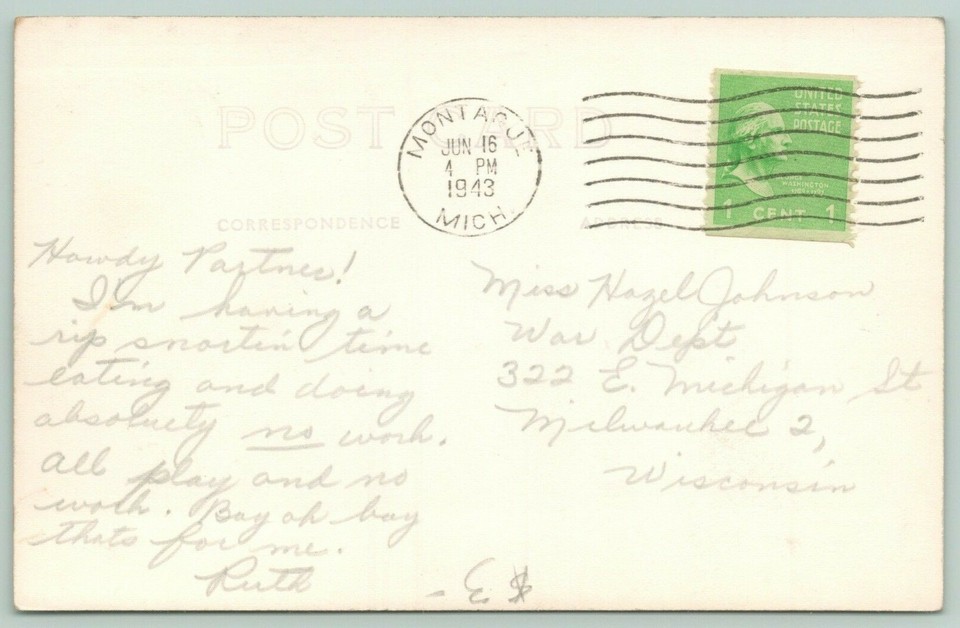 POST CARD
MONTAGUE
JUN 16
4 PM
1943
MICH.
UNITED
STATES
POSTAGE
GEORGE
WASHINGTON
1 CENT 1
CORRESPONDENCE
ADDRESS
Howdy Partner!
I'm having a
rip snortin time
eating and doing
absoluety no work.
All play and no
work. Boy oh boy
thats for me.
Ruth
Miss Hazel Johnson
War Dept
322 E. Michigan St
Milwaukee 2,
Wisconsin